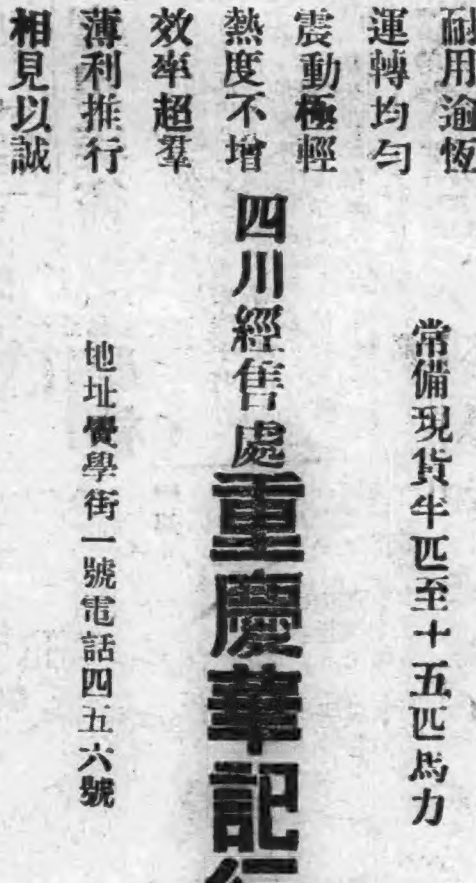 耐用逾恆
運轉均勻
震動極輕
熱度不增
效率超羣
薄利推行
相見以誠
常備現貨半匹至十五匹馬力
四川經售處重慶華記行
地址黌學街一號電話四五六號